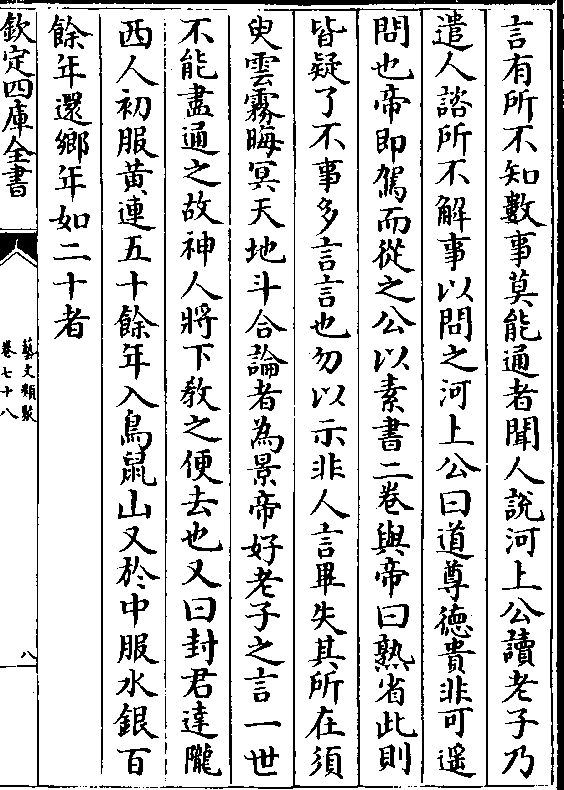 言有所不知數事莫能通者聞人說河上公讀老子乃
遣人諮所不解事以問之河上公曰道尊德貴非可遥
問也帝即駕而從之公以素書二卷與帝曰熟省此則
皆疑了不事多言言也勿以示非人言畢失其所在須
臾雲霧晦冥天地斗合論者為景帝好老子之言一世
不能盡通之故神人將下教之便去也又曰封君達隴
西人初服黄連五十餘年入鳥鼠山又於中服水銀百
餘年還鄉年如二十者
欽定四庫全書
藝文類聚
卷七十八
八